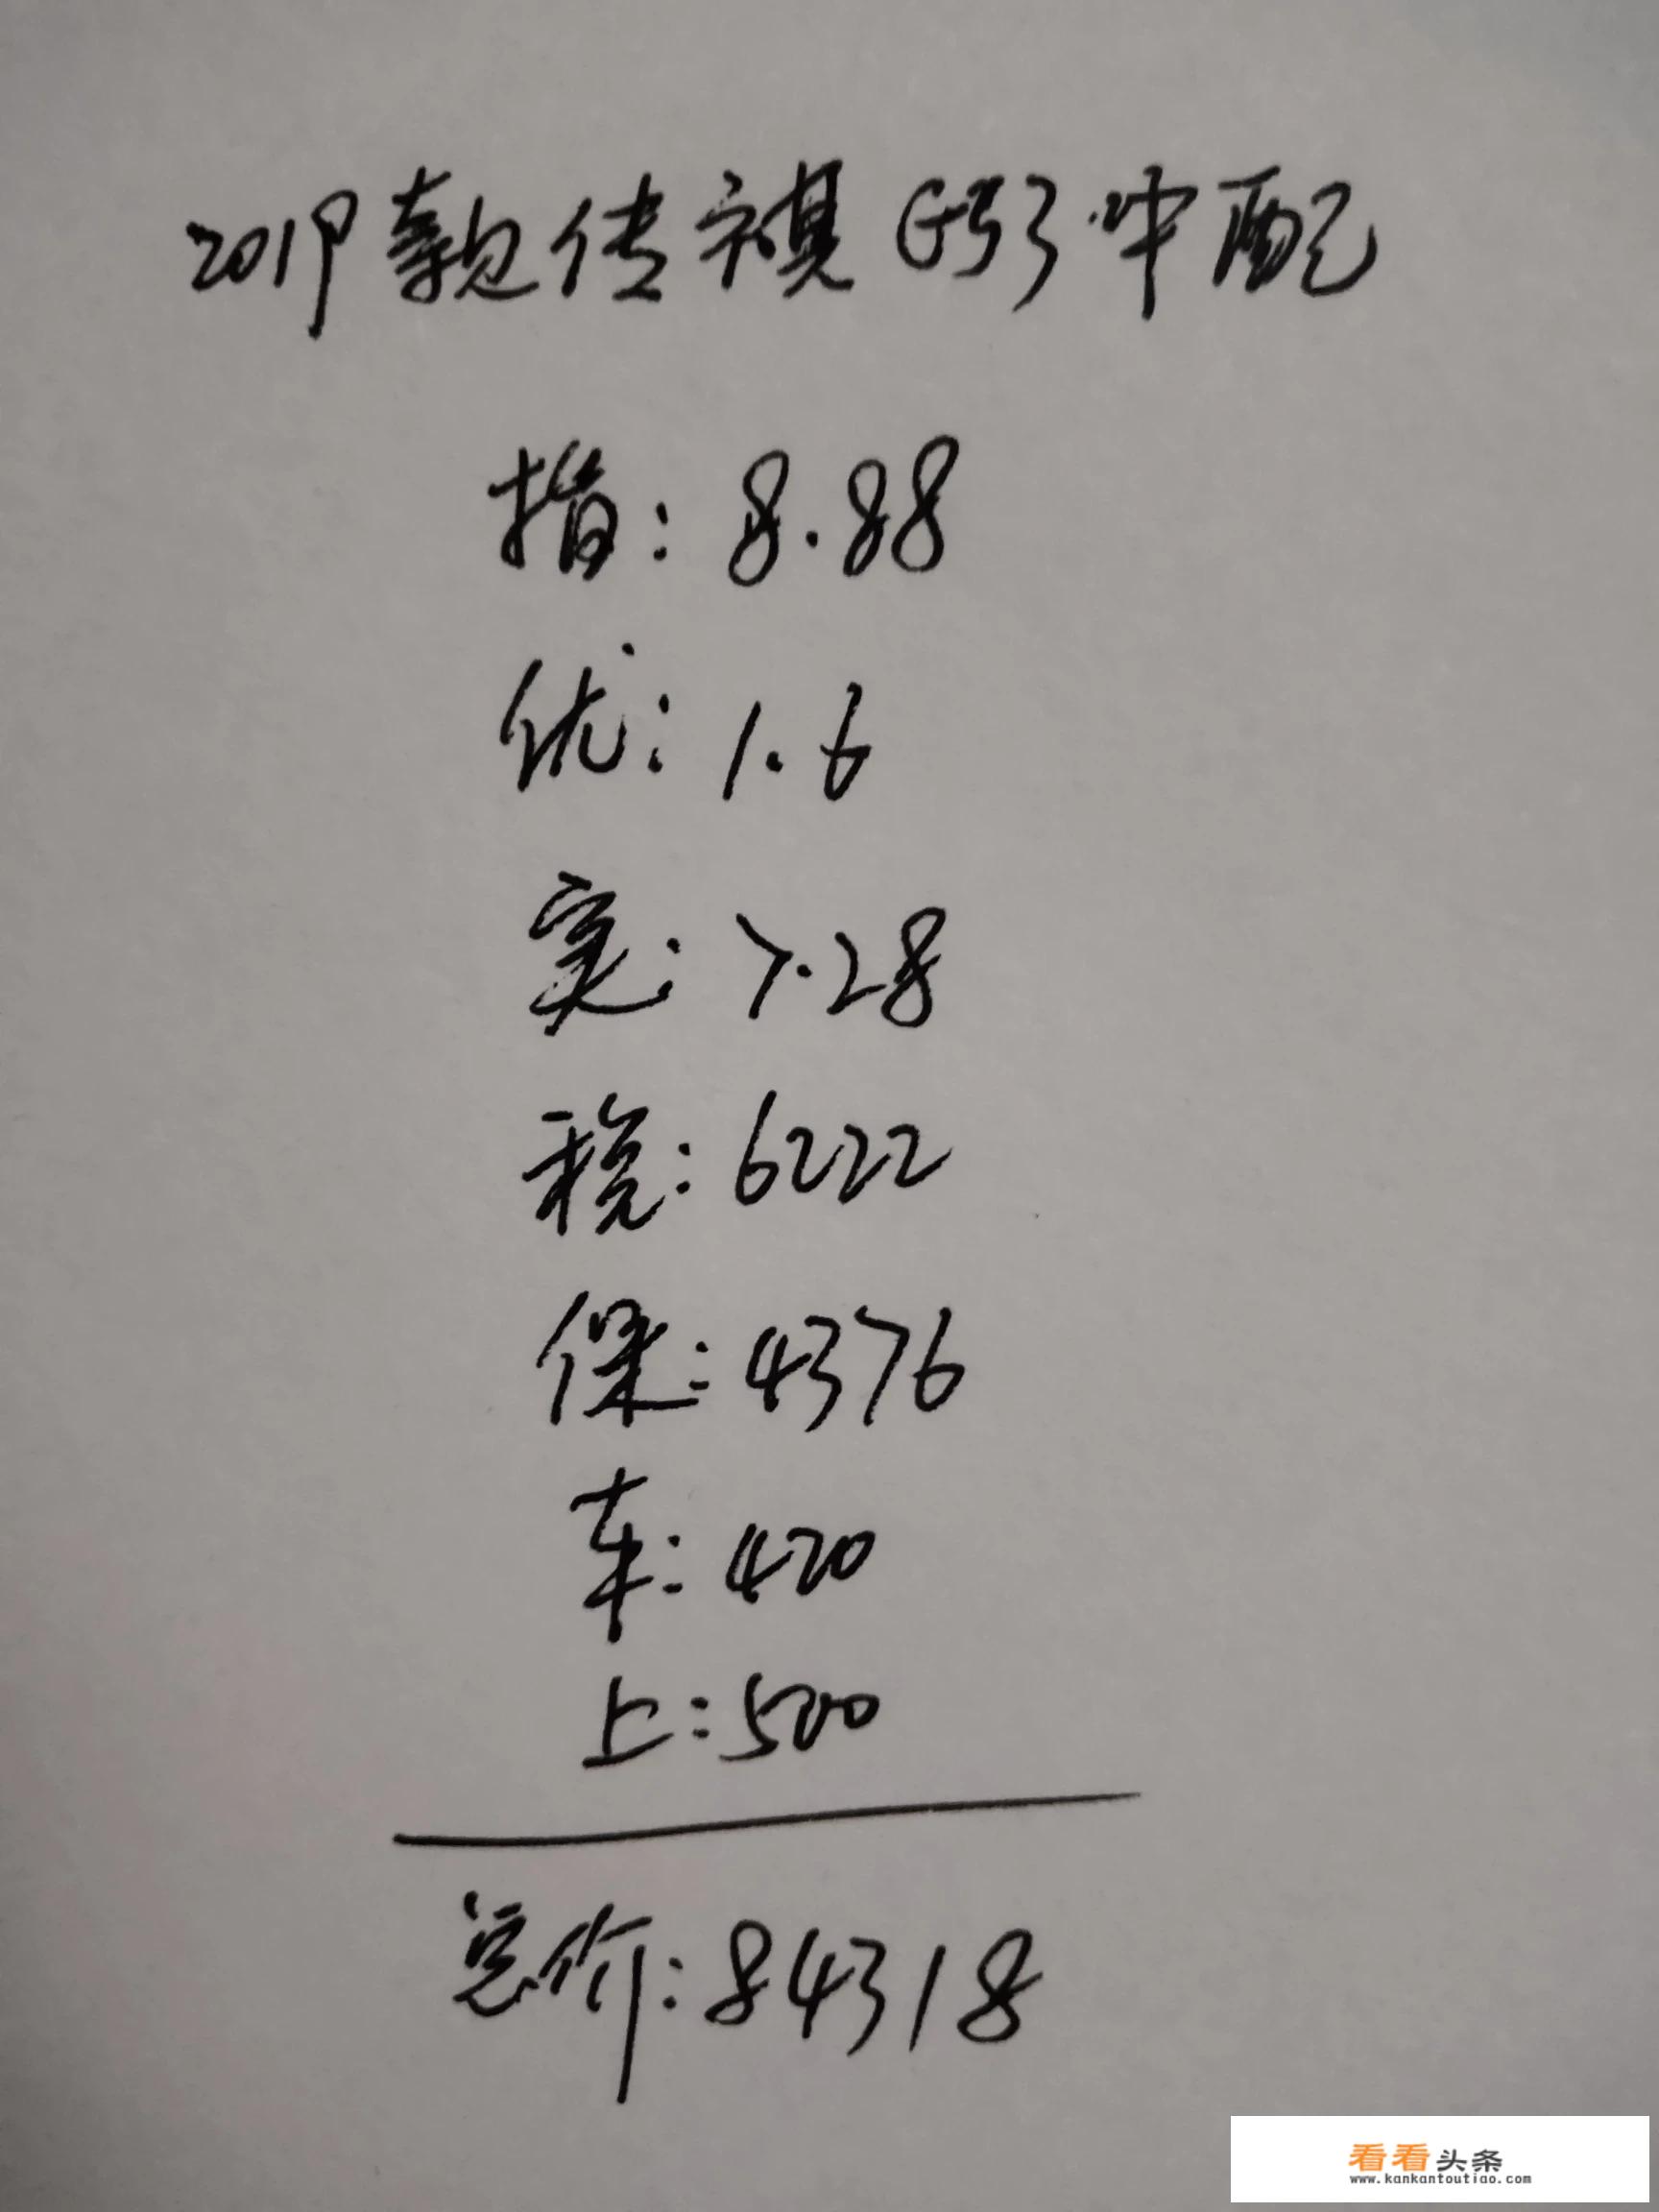 2019款传祺GS3中配
指:8.88
优:1.6
实:7.28
税:6222
保:4376
车:420
上:500
总价:84318
看看头条
www.kankantoutiao.com